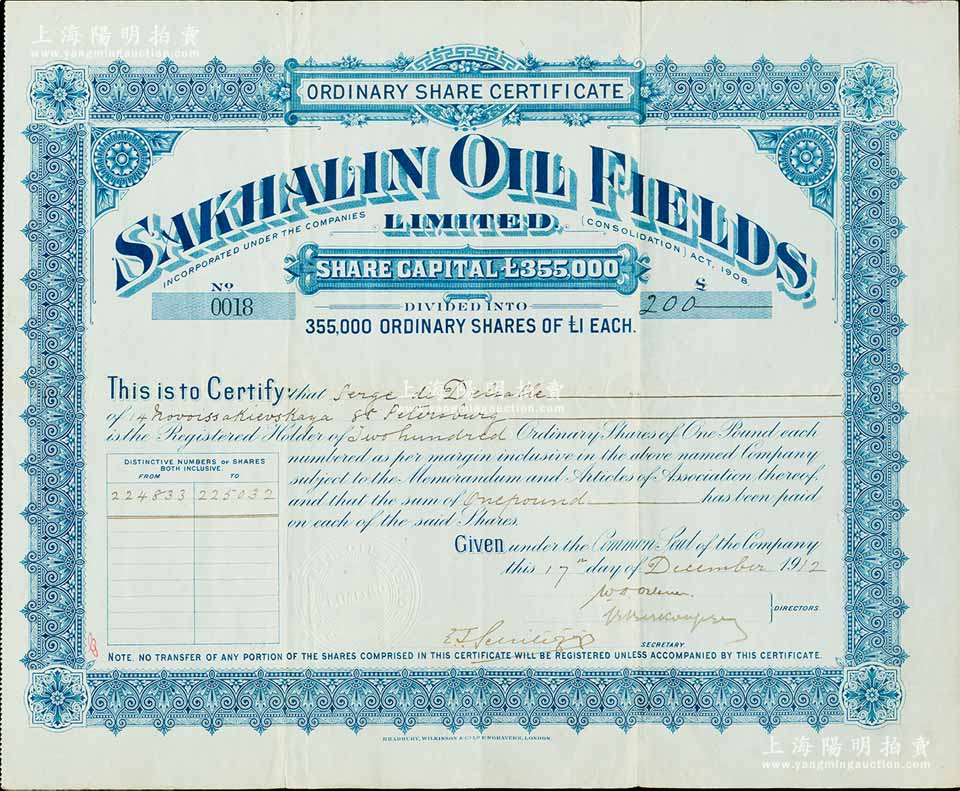 上海陽明拍賣
www.yangmingauction.com
ORDINARY SHARE CERTIFICATE
SAKHALIN OIL FIELDS,
LIMITED.
INCORPORATED UNDER THE COMPANIES (CONSOLIDATION) ACT, 1908.
SHARE CAPITAL £355,000
No £
0018 200
DIVIDED INTO
355,000 ORDINARY SHARES OF £1 EACH.
This is to Certify that Serge de
of 14 St Petersburg
is the Registered Holder of Two hundred Ordinary Shares of One Pound each
numbered as per margin inclusive in the above named Company
subject to the Memorandum and Articles of Association thereof,
and that the sum of One pound has been paid
on each of the said Shares.
DISTINCTIVE NUMBERS OF SHARES
BOTH INCLUSIVE.
FROM TO
224833 225032
Given under the Common Seal of the Company
this 17th day of December 1912
DIRECTORS.
SECRETARY
NOTE. NO TRANSFER OF ANY PORTION OF THE SHARES COMPRISED IN THIS CERTIFICATE WILL BE REGISTERED UNLESS ACCOMPANIED BY THIS CERTIFICATE.
BRADBURY, WILKINSON & Co Ld ENGRAVERS, LONDON.
上海陽明拍賣
www.yangmingauction.com
上海陽明拍賣
www.yangmingauction.com